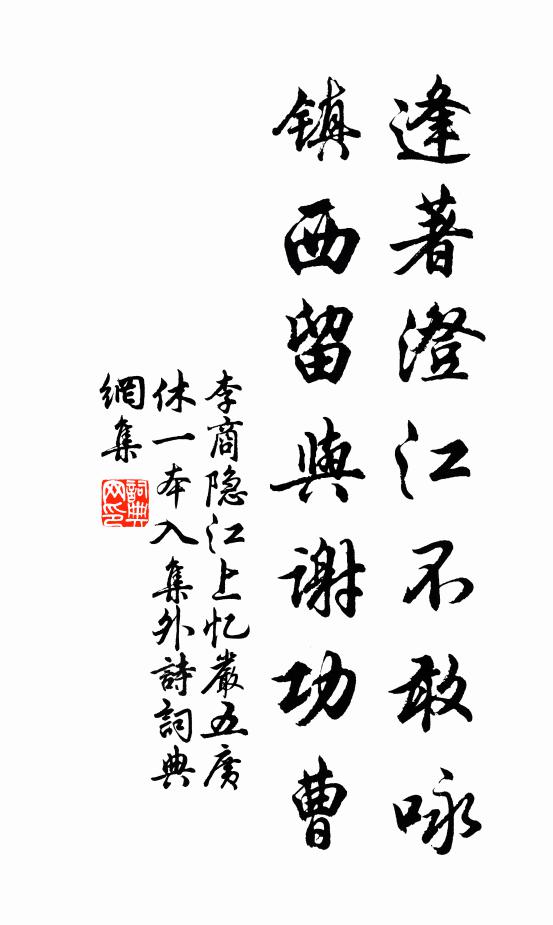 逢著澄江不敢咏
镇西留與谢功曹
李商隐江上忆嚴五廣
休一本入集外詩詞典
網集
詞典
网印